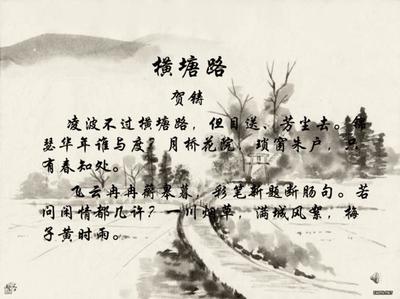 横塘路
贺铸
凌波不过横塘路,但目送、芳尘去。锦
瑟华年谁与度?月桥花院,琐窗朱户,只
有春知处。
飞云冉冉蘅皋暮,彩笔新题断肠句。若
问闲情都几许?一川烟草,满城风絮,梅
子黄时雨。